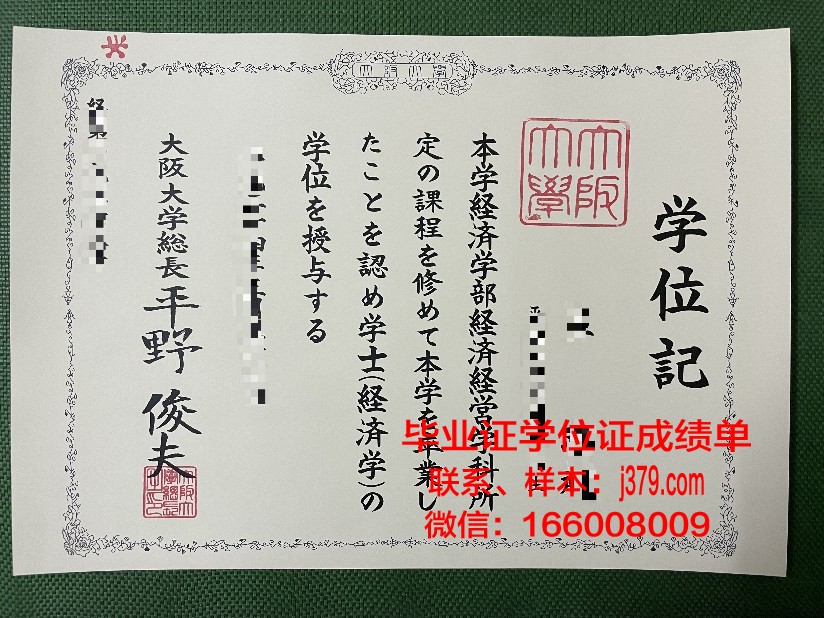 学位記
大阪大學
本学経済学部経済経営学科所
定の課程を修めて本学を卒業し
たことを認め学士(経済学)の
学位を授与する
大阪大学総長 平野俊夫
毕业证学位证成绩单
联系、样本：j379.com
微信：166008009